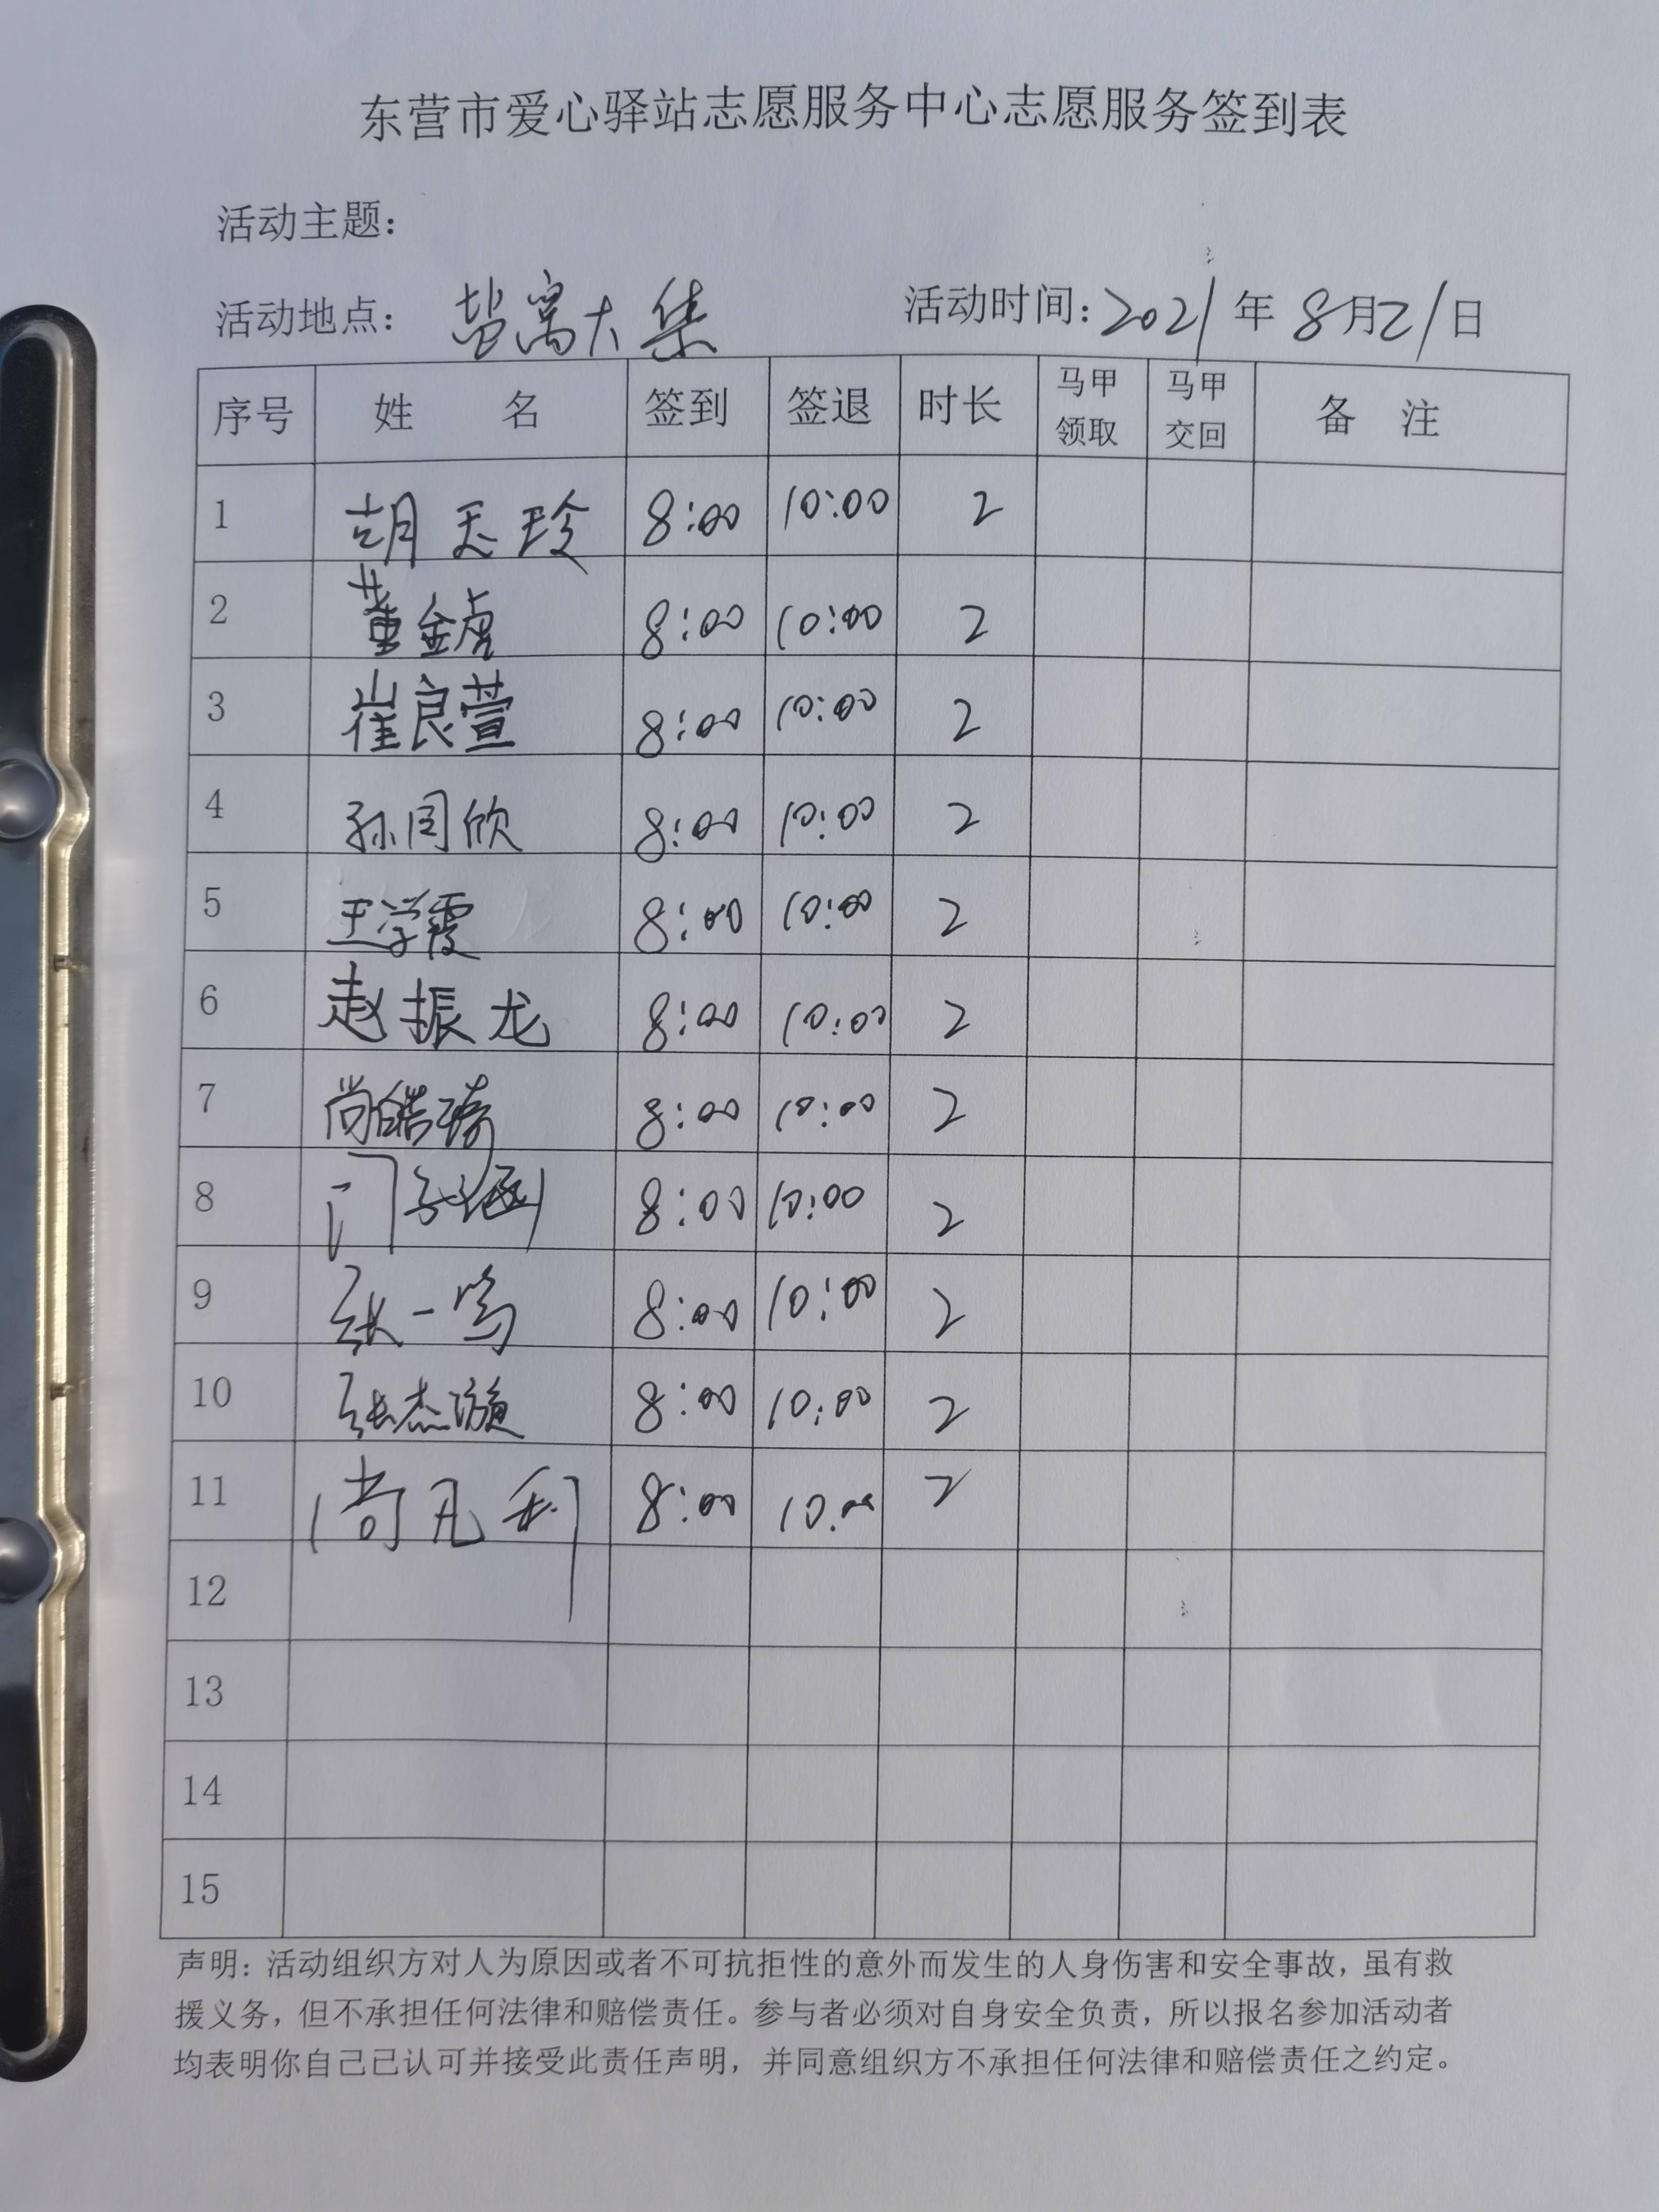 东营市爱心驿站志愿服务中心志愿服务签到表
活动主题：
活动地点： 盐窝大集 活动时间：2021年8月21日
序号 姓 名 签到 签退 时长 马甲领取 马甲交回 备 注
1 胡玉玲 8:00 10:00 2
2 董金虎 8:00 10:00 2
3 崔良萱 8:00 10:00 2
4 孙同欣 8:00 10:00 2
5 王学霞 8:00 10:00 2
6 赵振龙 8:00 10:00 2
7 尚皓琦 8:00 10:00 2
8 门子涵 8:00 10:00 2
9 张一鸣 8:00 10:00 2
10 张杰漩 8:00 10:00 2
11 尚凡利 8:00 10:00 2
12
13
14
15
声明：活动组织方对人为原因或者不可抗拒性的意外而发生的人身伤害和安全事故，虽有救
援义务，但不承担任何法律和赔偿责任。参与者必须对自身安全负责，所以报名参加活动者
均表明你自己已认可并接受此责任声明，并同意组织方不承担任何法律和赔偿责任之约定。